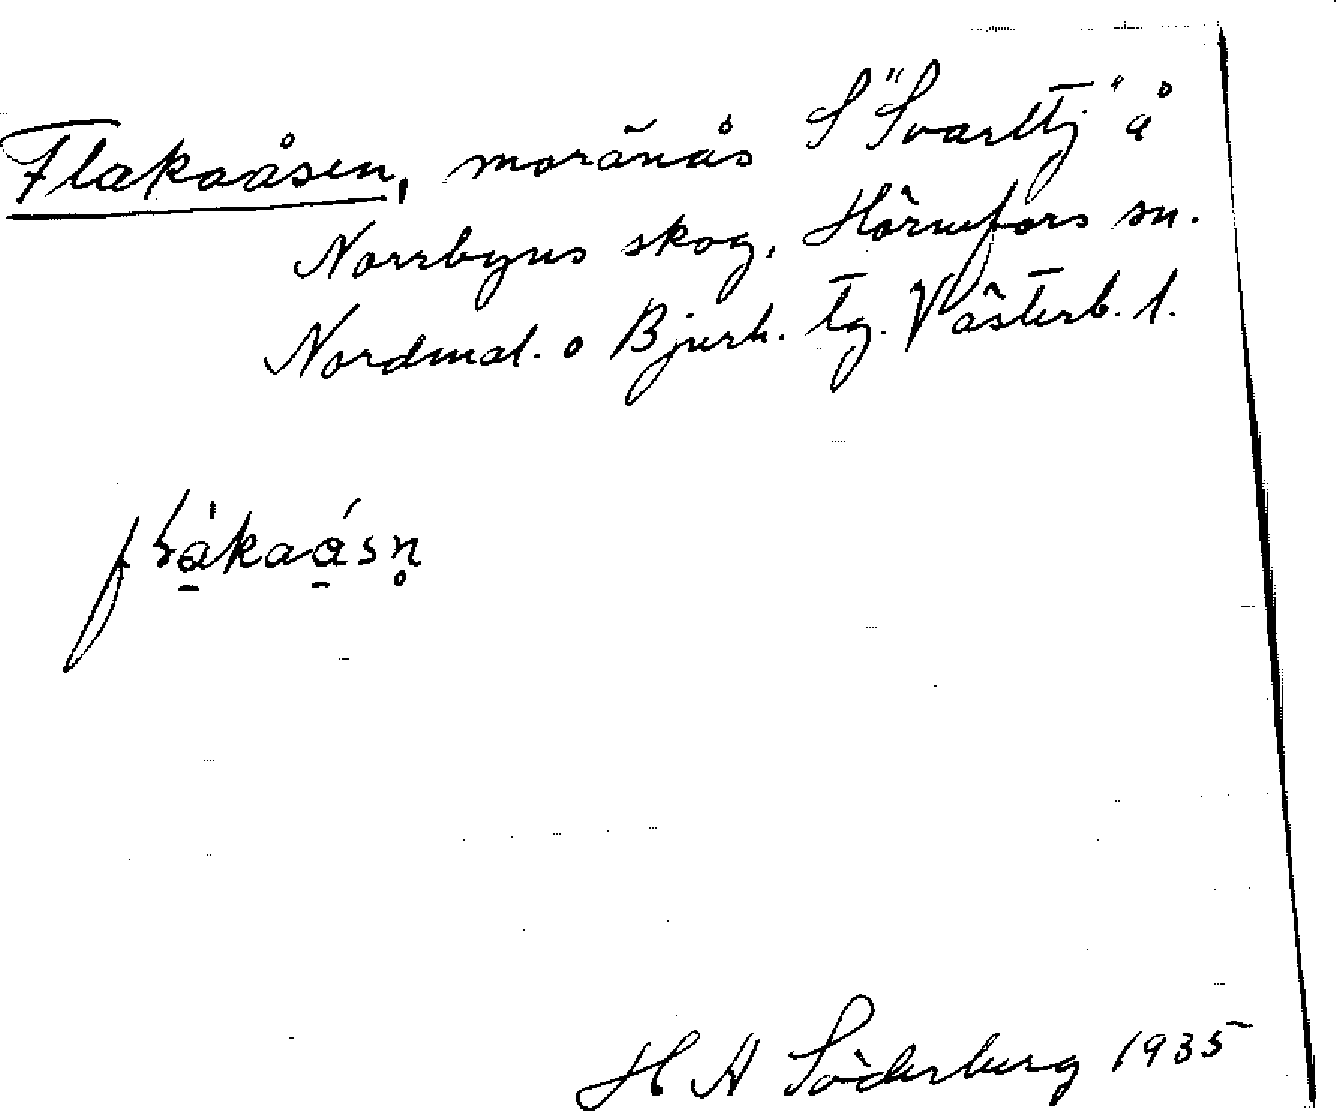 Flakaåsen, moränås S "Svarttj" å
Norrbyns skog, Hörnefors sn.
Nordmal. o Bjurh. tg. Västerb. l.
H A Söderberg 1935